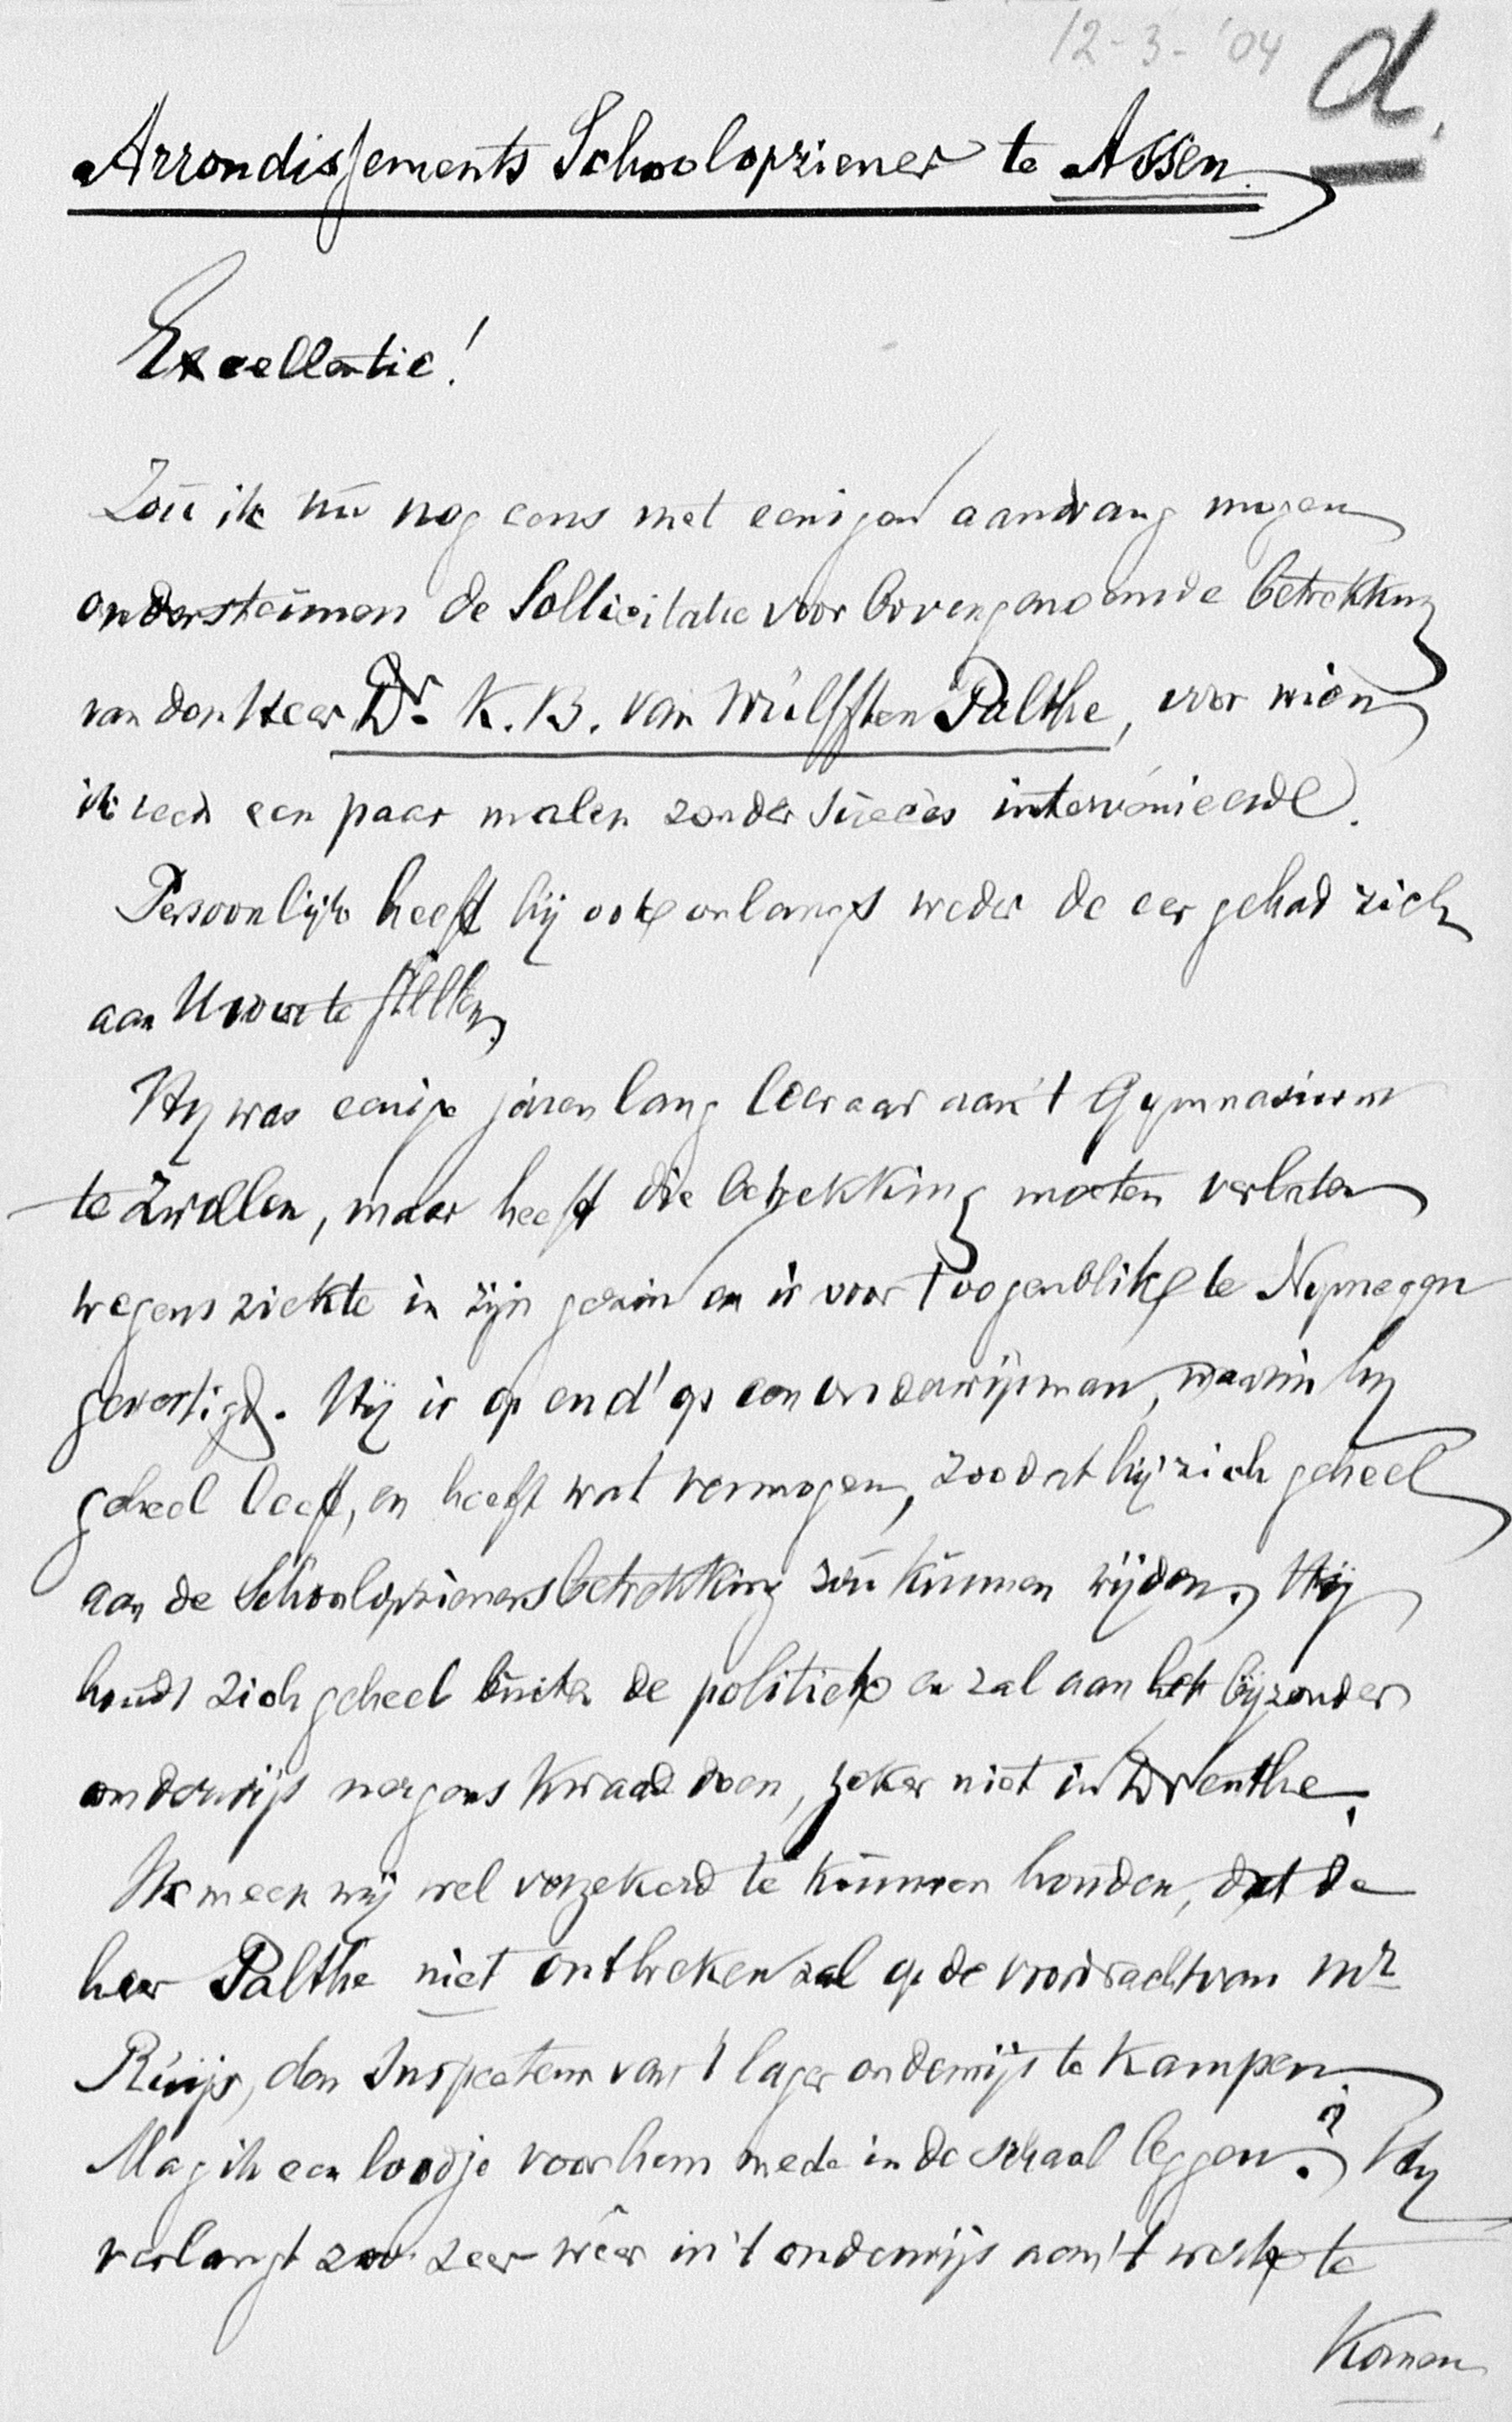 12-3-'04
a.
Arrondissements Schoolopziener te Assen.
Excellentie!
Zou ik nu nog eens met eenigen aandrang mogen
ondersteunen de Sollicitatie voor bovengenoemde betrekking
van den Heer Dr. K. B. van Wulfften Palthe, voor wien
ik reeds een paar malen zonder succès interveniëerde.
Persoonlijk heeft hij ook onlangs weder de eer gehad zich
aan U voor te stellen.
Hij was eenige jaren lang leeraar aan 't Gymnasium
te Zwollen, maar heeft die betrekking moeten verlaten
wegens ziekte in zijn gezin en is voor 't oogenblik te Nymegen
gevestigd. Hij is op en d' op een onderwijsman, waarin hij
geheel leeft, en heeft wat vermogen, zoodat hij zich geheel
aan de Schoolopzienersbetrekking zou kunnen wijden. Hij
houdt zich geheel buiten de politiek en zal aan het bijzonder
onderwijs nergens kwaad doen, zeker niet in Drenthe.
Ik meen mij wel verzekerd te kunnen houden, dat de
heer Palthe niet ontbreken zal op de voordracht van Mr
Ruijs, den Inspecteur van 't lager onderwijs te Kampen.
Mag ik een loodje voor hem mede in de schaal leggen? Hij
verlangt zoo zeer wêer in 't onderwijs aan 't werk te
Komen